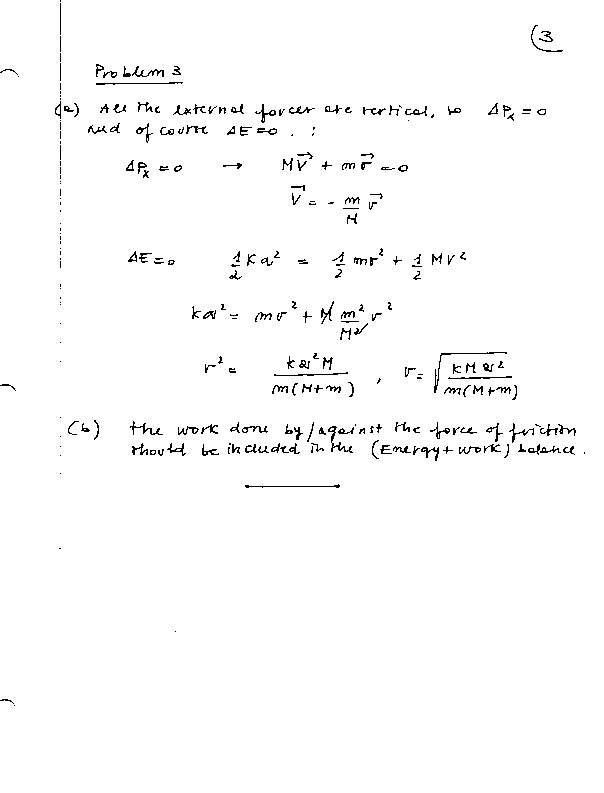 3
Problem 3
(a) All the external forces are vertical, so ΔPₓ = 0
And of course ΔE = 0. :
ΔPₓ = 0 → MV⃗ + mv⃗ = 0
V⃗ = - m/M v⃗
ΔE = 0 1/2 ka² = 1/2 mv² + 1/2 MV²
ka² = mv² + M m²/M² v²
v² = ka²M / m(M+m) , v = √(kMa² / m(M+m))
(b) the work done by/against the force of friction
should be included in the (Energy + work) balance.